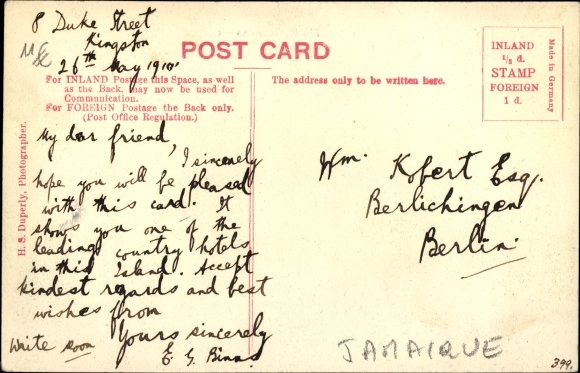 8 Duke Street
Kingston
26th May 1910.
POST CARD
For INLAND Postage this Space, as well
as the Back, may now be used for
Communication.
For FOREIGN Postage the Back only.
(Post Office Regulation.)
The address only to be written here.
INLAND
½ d.
STAMP
FOREIGN
1 d.
Made in Germany
H. S. Duperly, Photographer.
My dear friend,
I sincerely
hope you will be pleased
with this card. It
shows you one of the
leading country hotels
in this Island. Accept
kindest regards and best
wishes from
Yours sincerely
E G. Binns
Write soon
Wm. Kobert Esq.
Berlichingen
Berlin.
JAMAIQUE
399.